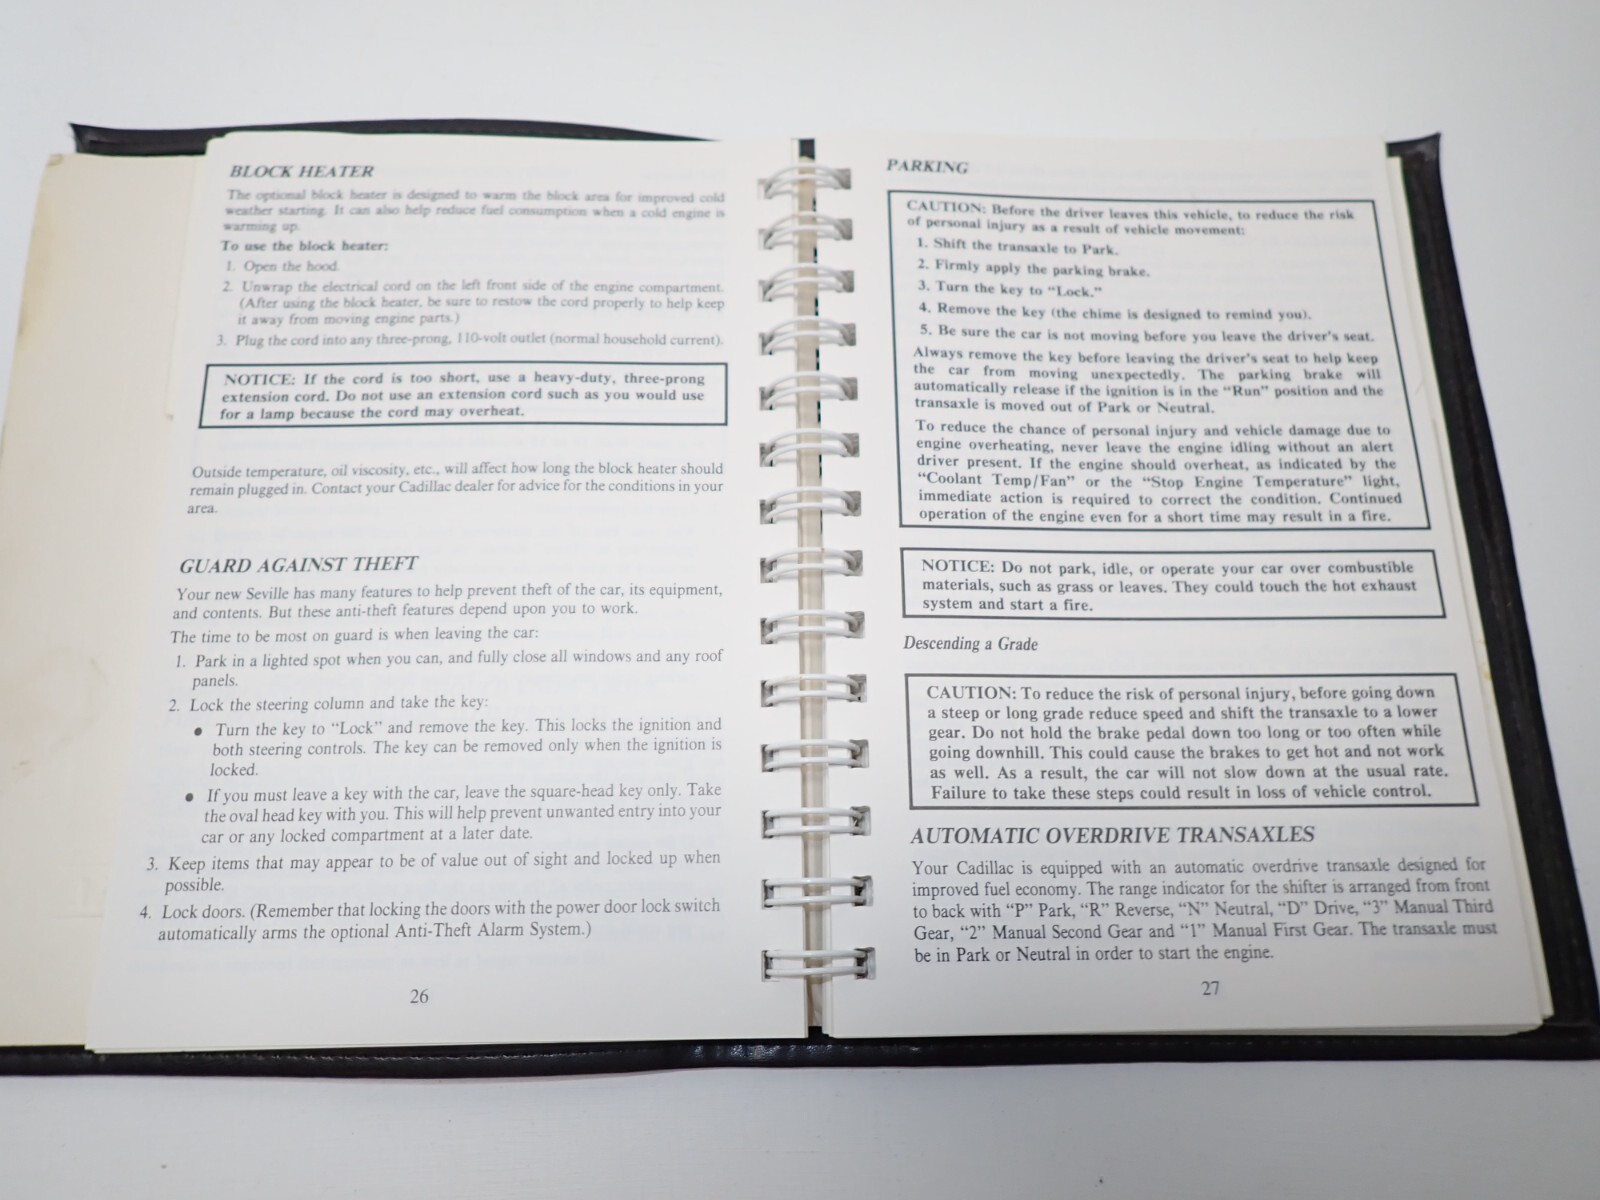 BLOCK HEATER
The optional block heater is designed to warm the block area for improved cold
weather starting. It can also help reduce fuel consumption when a cold engine is
warming up.
To use the block heater:
1. Open the hood.
2. Unwrap the electrical cord on the left front side of the engine compartment.
(After using the block heater, be sure to restow the cord properly to help keep
it away from moving engine parts.)
3. Plug the cord into any three-prong, 110-volt outlet (normal household current).
NOTICE: If the cord is too short, use a heavy-duty, three-prong
extension cord. Do not use an extension cord such as you would use
for a lamp because the cord may overheat.
Outside temperature, oil viscosity, etc., will affect how long the block heater should
remain plugged in. Contact your Cadillac dealer for advice for the conditions in your
area.
GUARD AGAINST THEFT
Your new Seville has many features to help prevent theft of the car, its equipment,
and contents. But these anti-theft features depend upon you to work.
The time to be most on guard is when leaving the car:
1. Park in a lighted spot when you can, and fully close all windows and any roof
panels.
2. Lock the steering column and take the key:
● Turn the key to “Lock” and remove the key. This locks the ignition and
both steering controls. The key can be removed only when the ignition is
locked.
● If you must leave a key with the car, leave the square-head key only. Take
the oval head key with you. This will help prevent unwanted entry into your
car or any locked compartment at a later date.
3. Keep items that may appear to be of value out of sight and locked up when
possible.
4. Lock doors. (Remember that locking the doors with the power door lock switch
automatically arms the optional Anti-Theft Alarm System.)
26
PARKING
CAUTION: Before the driver leaves this vehicle, to reduce the risk
of personal injury as a result of vehicle movement:
1. Shift the transaxle to Park.
2. Firmly apply the parking brake.
3. Turn the key to “Lock.”
4. Remove the key (the chime is designed to remind you).
5. Be sure the car is not moving before you leave the driver's seat.
Always remove the key before leaving the driver's seat to help keep
the car from moving unexpectedly. The parking brake will
automatically release if the ignition is in the “Run” position and the
transaxle is moved out of Park or Neutral.
To reduce the chance of personal injury and vehicle damage due to
engine overheating, never leave the engine idling without an alert
driver present. If the engine should overheat, as indicated by the
“Coolant Temp/Fan” or the “Stop Engine Temperature” light,
immediate action is required to correct the condition. Continued
operation of the engine even for a short time may result in a fire.
NOTICE: Do not park, idle, or operate your car over combustible
materials, such as grass or leaves. They could touch the hot exhaust
system and start a fire.
Descending a Grade
CAUTION: To reduce the risk of personal injury, before going down
a steep or long grade reduce speed and shift the transaxle to a lower
gear. Do not hold the brake pedal down too long or too often while
going downhill. This could cause the brakes to get hot and not work
as well. As a result, the car will not slow down at the usual rate.
Failure to take these steps could result in loss of vehicle control.
AUTOMATIC OVERDRIVE TRANSAXLES
Your Cadillac is equipped with an automatic overdrive transaxle designed for
improved fuel economy. The range indicator for the shifter is arranged from front
to back with “P” Park, “R” Reverse, “N” Neutral, “D” Drive, “3” Manual Third
Gear, “2” Manual Second Gear and “1” Manual First Gear. The transaxle must
be in Park or Neutral in order to start the engine.
27